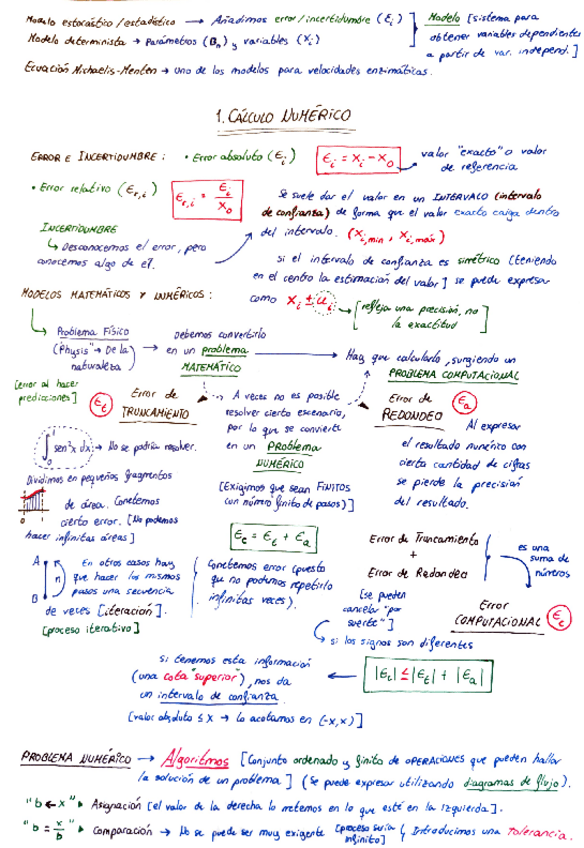 Modelo estocástico/estadístico → Añadimos error/incertidumbre (εi)
Modelo determinista → Parámetros (Bn) y variables (Xi)
Modelo [sistema para
obtener variables dependientes
a partir de var. independ.]
Ecuación Michaelis-Menten → uno de los modelos para velocidades enzimáticas.
1. CÁLCULO NUMÉRICO
ERROR E INCERTIDUMBRE: • Error absoluto (Єi) Єi = Xi - X0
valor "exacto" o valor
de referencia
• Error relativo (Єr,i) Єr,i = Єi / X0
Se suele dar el valor en un INTERVALO (intervalo
de confianza) de forma que el valor exacto caiga dentro
del intervalo. (Xi,min, Xi,máx)
INCERTIDUMBRE
↳ Desconocemos el error, pero
conocemos algo de él.
si el intervalo de confianza es simétrico [teniendo
en el centro la estimación del valor] se puede expresar
como Xi ± ui → [refleja una precisión, no
la exactitud]
MODELOS MATEMÁTICOS Y NUMÉRICOS:
Problema Físico
("Physis" → De la
naturaleza)
Debemos convertirlo
en un problema
MATEMÁTICO
Hay que calcularlo, surgiendo un
PROBLEMA COMPUTACIONAL
[error al hacer
predicciones]
Єt Error de
TRUNCAMIENTO
A veces no es posible
resolver cierto escenario,
por lo que se convierte
en un PROBLEMA
NUMÉRICO
[Exigimos que sean FINITOS
con número finito de pasos)]
Error de
REDONDEO Єa
Al expresar
el resultado numérico con
cierta cantidad de cifras
se pierde la precisión
del resultado.
∫₀¹ sen²x dx → No se podría resolver.
Dividimos en pequeños fragmentos
de área. Cometemos
cierto error. [No podemos
hacer infinitas áreas]
Єc = Єt + Єa
Error de Truncamiento
+
Error de Redondeo
es una
suma de
números
Error
COMPUTACIONAL Єc
A
n
B
En otros casos hay
que hacer los mismos
pasos una secuencia
de veces [iteración].
[proceso iterativo]
Cometemos error (puesto
que no podemos repetirlo
infinitas veces).
[se pueden
cancelar "por
suerte"]
↳ si los signos son diferentes
si tenemos esta información
(una cota "superior"), nos da
un intervalo de confianza
[valor absoluto ≤ x → lo acotamos en (-x, x)]
|Єi| ≤ |Єt| + |Єa|
PROBLEMA NUMÉRICO → Algoritmos [Conjunto ordenado y finito de OPERACIONES que pueden hallar
la solución de un problema] (Se puede expresar utilizando diagramas de flujo).
"b ← x" ▸ Asignación [el valor de la derecha lo metemos en lo que esté en la izquierda].
"b = x/b" ▸ Comparación → No se puede ser muy exigente [proceso sería
infinito] Introducimos una Tolerancia.